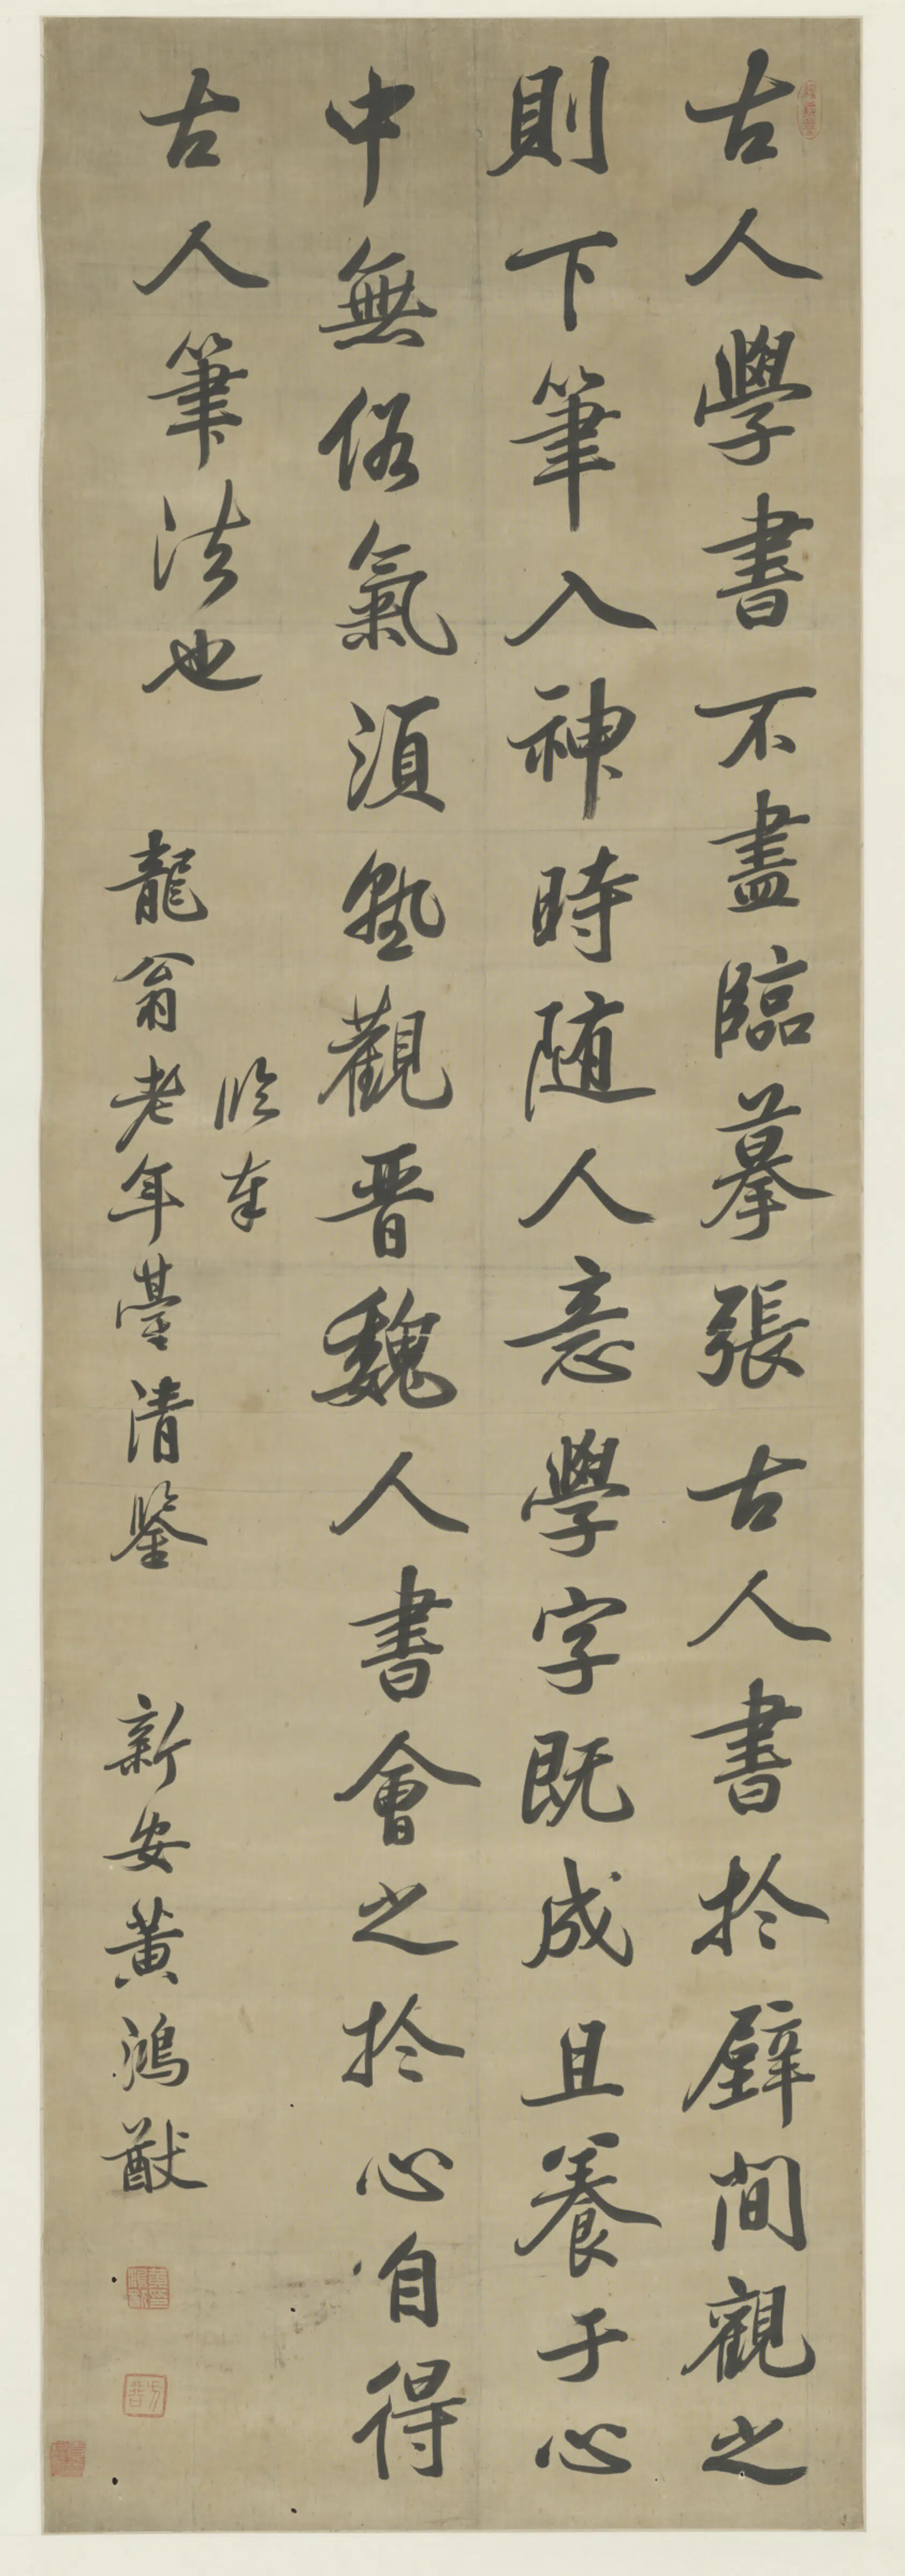 古人學書不盡臨摹張古人書於壁間觀之
則下筆入神時随人意學字既成且養于心
中無俗氣須塾觀晉魏人書會之於心自得
古人筆法也
臨奉
龍翁老年臺清鑒
新安黄鴻猷